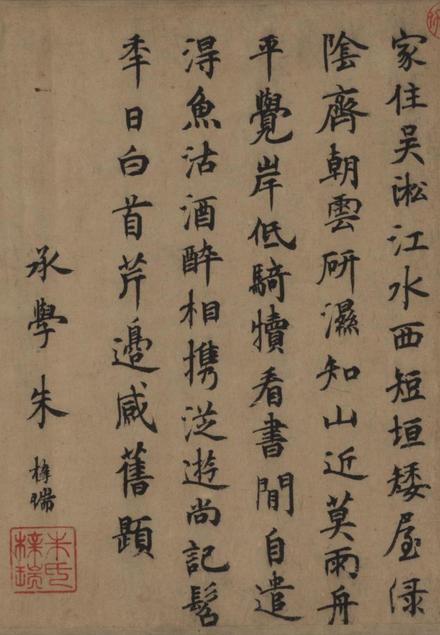 家住吳淞江水西短垣矮屋渌
陰齊朝雲研濕知山近莫雨舟
平覺岸低騎犢看書閒自遣
淂魚沽酒醉相携從遊尚記髫
秊日白首芹邊感舊題
承學朱梓瑞
朱氏
梓瑞